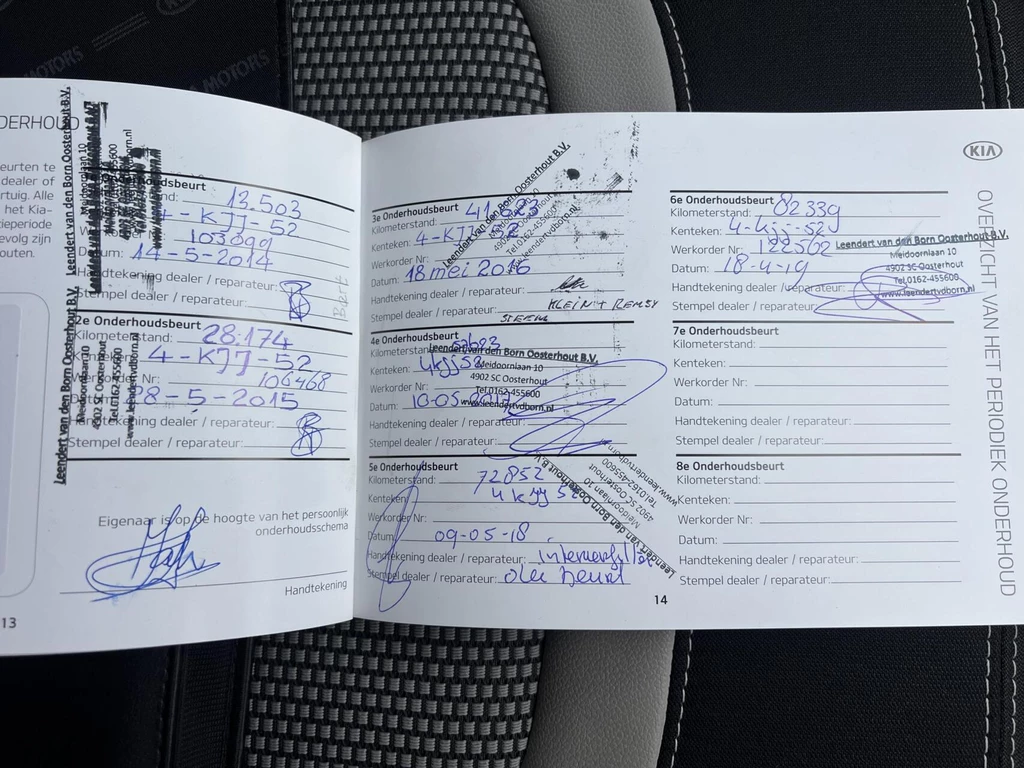 KIA MOTORS
DERHOUD
eurten te
dealer of
rtuig. Alle
het Kia-
tieperiode
evolg zijn
outen.
Leendert van den Born Oosterhout B.V.
Meidoornlaan 10
.nl
hudsbeurt
stand: 13.503
4-KJJ-52
103099
Datum: 14-5-2014
Handtekening dealer / reparateur:
Stempel dealer / reparateur:
Bert
2e Onderhoudsbeurt
Kilometerstand: 28.174
Kenteken: 4-KJJ-52
Werkorder Nr: 106468
28-5-2015
Handtekening dealer / reparateur:
Stempel dealer / reparateur:
Leendert van den Born Oosterhout B.V.
Meidoornlaan 10
4902 SC Oosterhout
Tel.0162-455600
www.leendertvdborn.nl
Eigenaar is op de hoogte van het persoonlijk
onderhoudsschema
Handtekening
13
3e Onderhoudsbeurt
Kilometerstand:
Kenteken: 4-KJJ-52
Werkorder Nr:
Datum: 18 mei 2016
Handtekening dealer / reparateur:
Stempel dealer / reparateur:
Leendert van den Born Oosterhout B.V.
Meidoornlaan 10
4902 SC Oosterhout
Tel.0162-455600
www.leendertvdborn.nl
4e Onderhoudsbeurt
Kilometerstand:
Kenteken: 4kjj52
Werkorder Nr:
Datum: 10-05-2017
Handtekening dealer / reparateur:
Stempel dealer / reparateur:
Leendert van den Born Oosterhout B.V.
Meidoornlaan 10
4902 SC Oosterhout
Tel.0162-455600
www.leendertvdborn.nl
5e Onderhoudsbeurt
Kilometerstand: 72852
Kenteken: 4kjj52
Werkorder Nr:
Datum: 09-05-18
Handtekening dealer / reparateur:
Stempel dealer / reparateur: olie beurt
Leendert van den Born Oosterhout B.V.
Meidoornlaan 10
4902 SC Oosterhout
Tel.0162-455600
www.leendertvdborn.nl
14
6e Onderhoudsbeurt
Kilometerstand: 82339
Kenteken: 4-kjj-52
Werkorder Nr: 122562
Datum: 18-4-19
Handtekening dealer / reparateur:
Stempel dealer / reparateur:
Leendert van den Born Oosterhout B.V.
Meidoornlaan 10
4902 SC Oosterhout
Tel.0162-455600
www.leendertvdborn.nl
7e Onderhoudsbeurt
Kilometerstand:
Kenteken:
Werkorder Nr:
Datum:
Handtekening dealer / reparateur:
Stempel dealer / reparateur:
8e Onderhoudsbeurt
Kilometerstand:
Kenteken:
Werkorder Nr:
Datum:
Handtekening dealer / reparateur:
Stempel dealer / reparateur:
KIA
OVERZICHT VAN HET PERIODIEK ONDERHOUD